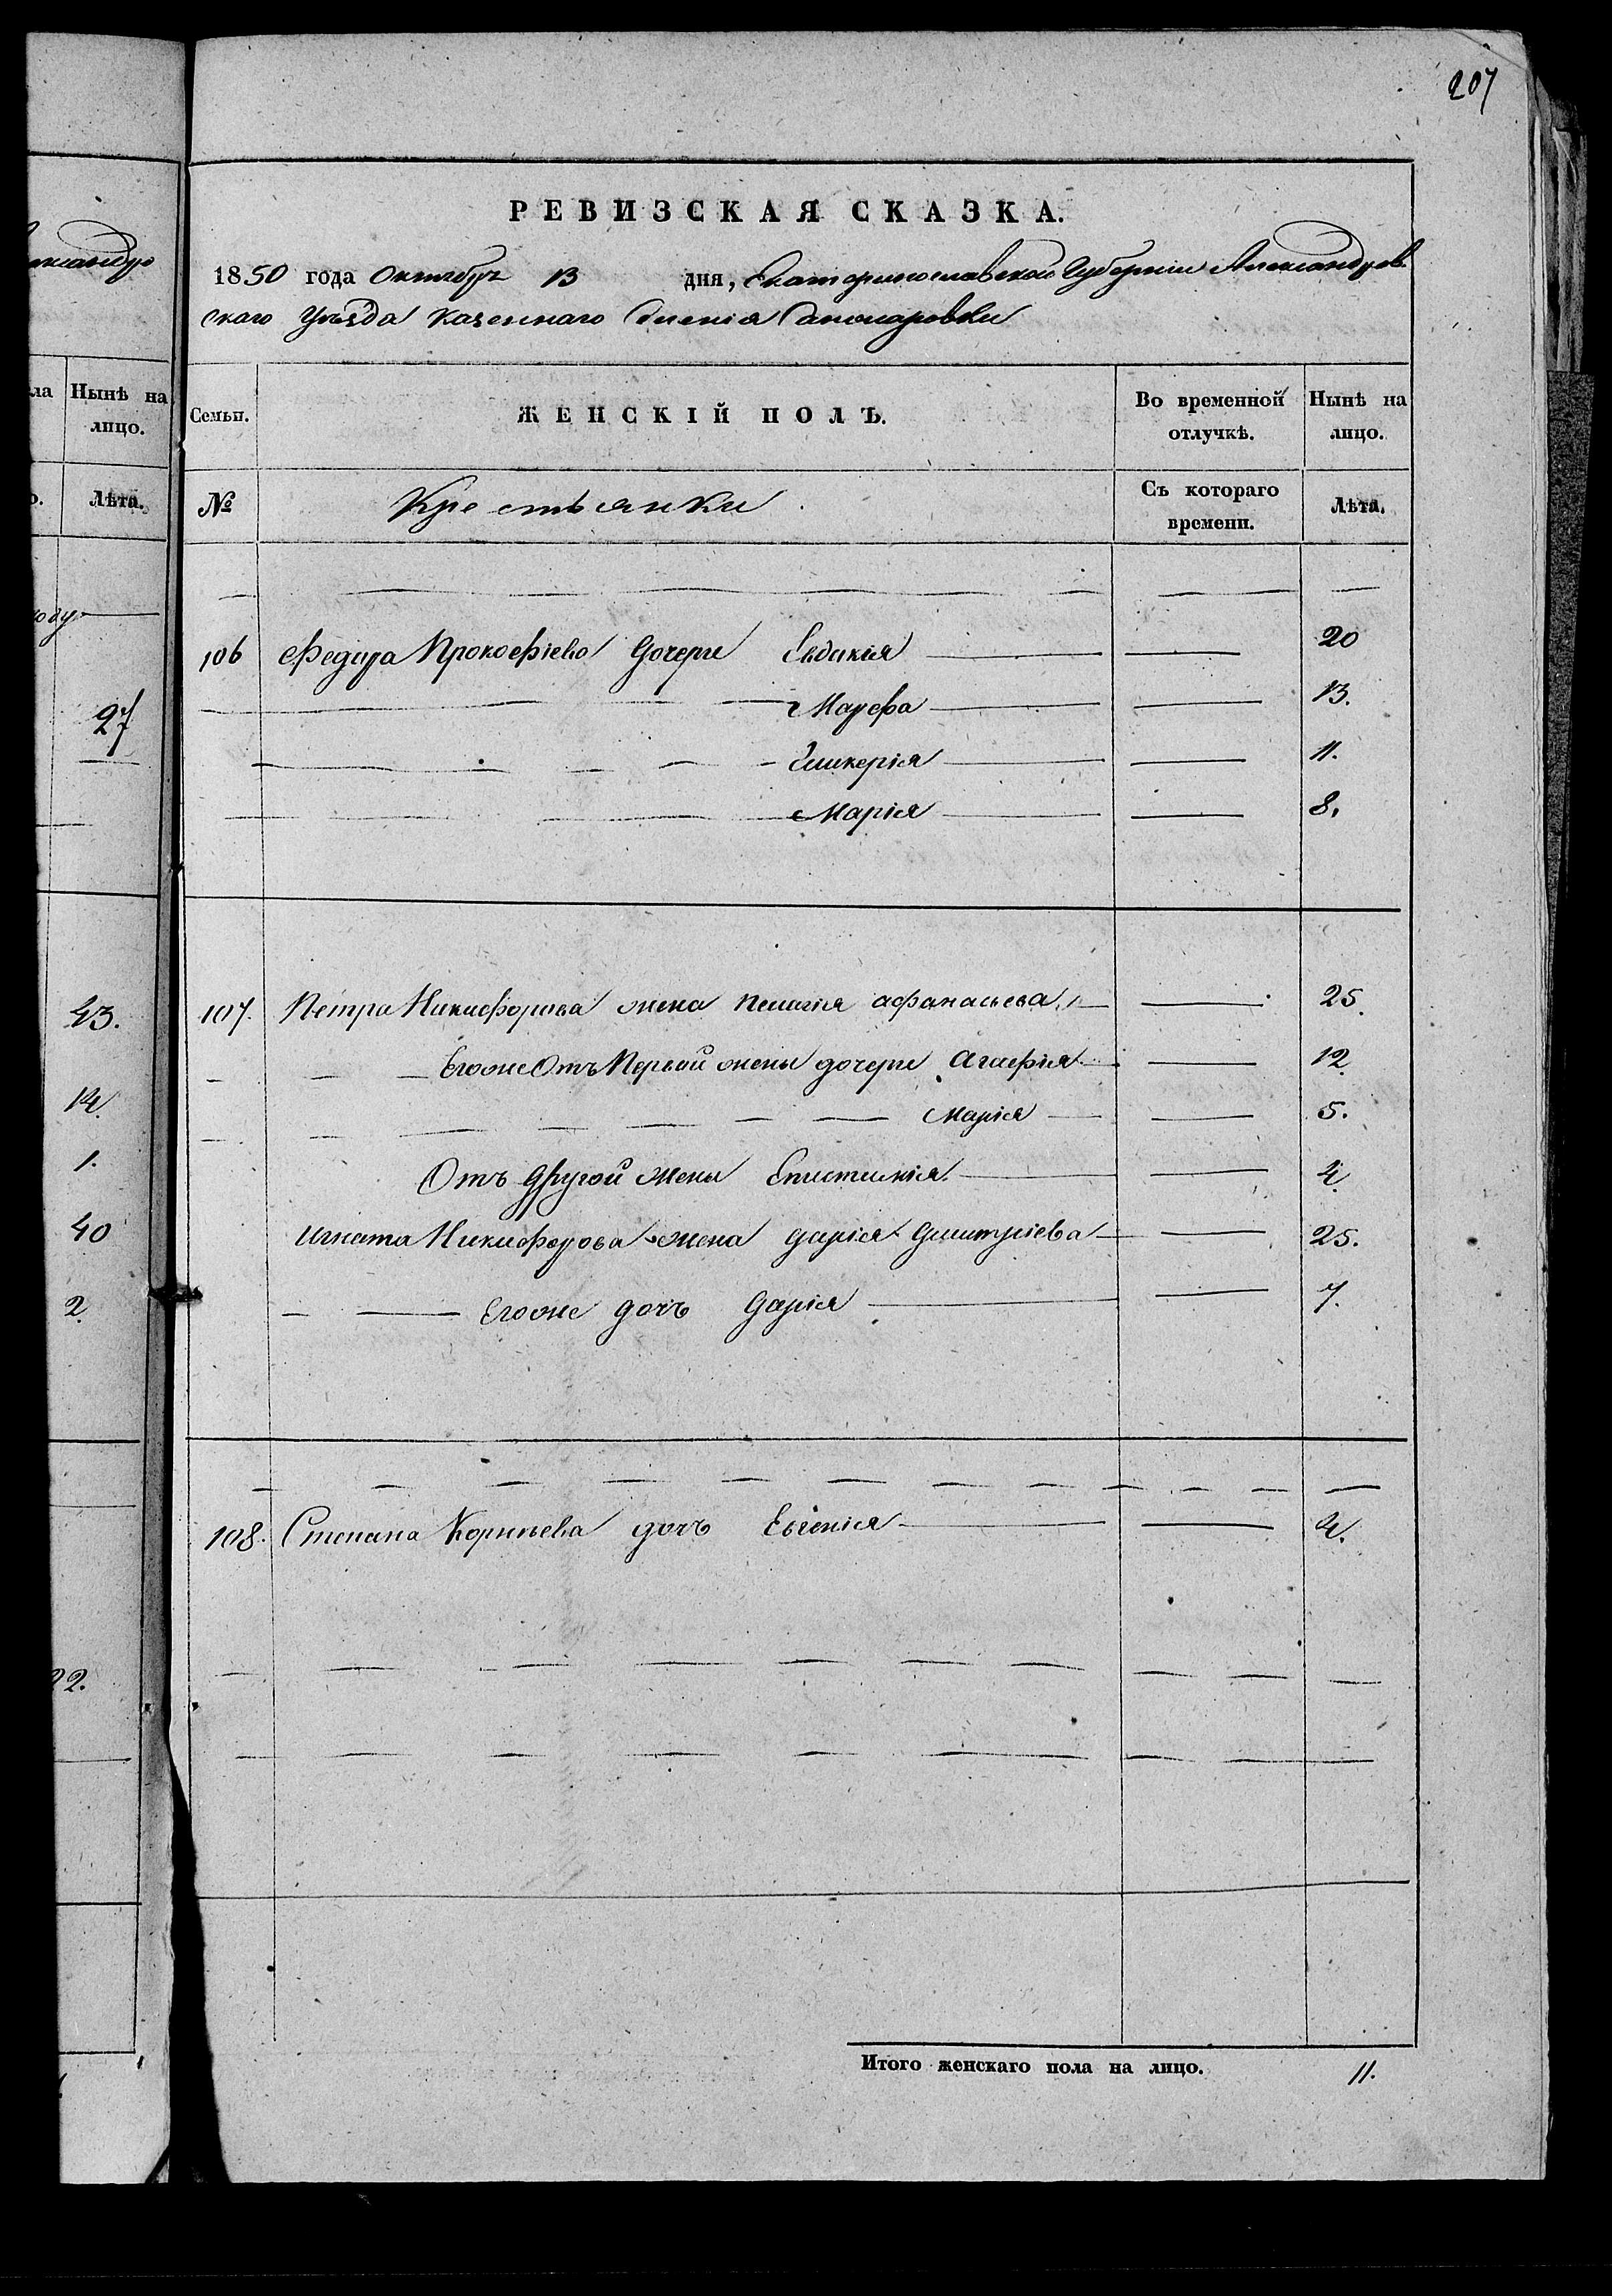 207
РЕВИЗСКАЯ СКАЗКА.
1850 года Октября 13 дня, Екатеринославской Губерніи Александров-
скаго Уѣзда Казеннаго Селенія Санжаровки
Семьи. ЖЕНСКІЙ ПОЛЪ. Во временной отлучкѣ. Нынѣ на лицо.
№ Крестьянки Съ котораго времени. Лѣта.
106 Федора Прокофіева Дочери Евдокія 20
Марфа 13.
Гликерія 11.
Марія 8.
107. Петра Никифорова жена Пелагія Афанасьева 25.
Егоже Отъ Первой жены дочери Агафія 12.
Марія 5.
Отъ Другой жены Епистимія 4.
Игната Никифорова жена Дарія Дмитріева 25.
Егоже дочь Дарія 7.
108. Степана Корнѣева дочь Евгенія 4.
Итого женскаго пола на лицо. 11.
Нынѣ на
лицо.
Лѣта.
27
43.
14.
1.
40
2.
22.